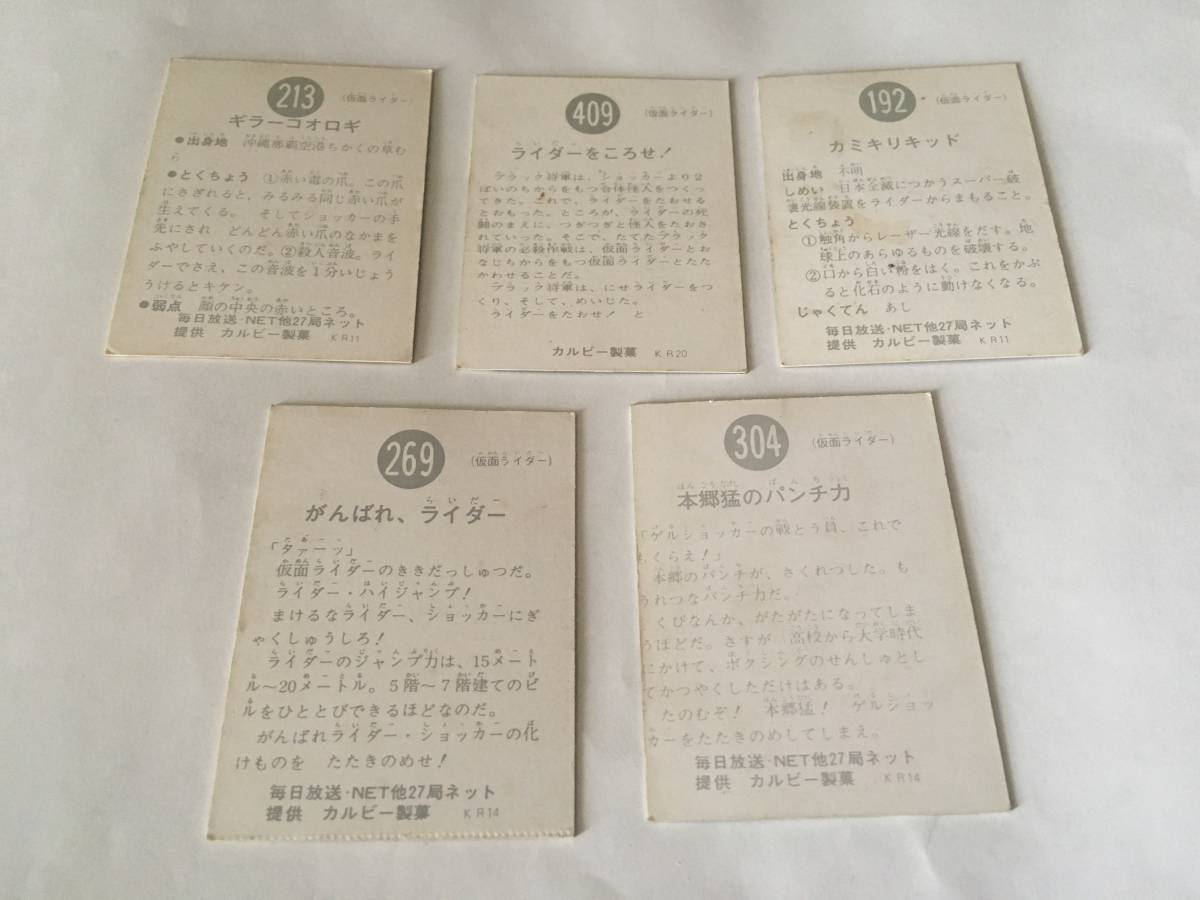 213
(仮面ライダー)
ギラーコオロギ
●出身地 沖縄那覇空港ちかくの草む
ら
●とくちょう ①赤い毒の爪。この爪
にさされると、みるみる同じ赤い爪が
生えてくる。 そしてショッカーの手
先にされ どんどん赤い爪のなかまを
ふやしていくのだ。②殺人音波。ライ
ダーでさえ、この音波を1分いじょう
うけるとキケン。
●弱点 顔の中央の赤いところ。
毎日放送・NET他27局ネット
提供 カルビー製菓 KR11
409
(仮面ライダー)
ライダーをころせ!
ブラック将軍は、ショッカーより2
ばいのちからをもつ合体怪人をつくっ
てきた。これで、ライダーをたおせる
とおもった。ところが、ライダーの死
闘のまえに、つぎつぎと怪人をたおさ
れていった。そこで、たてたブラック
将軍の必殺作戦は、仮面ライダーとお
なじちからをもつ仮面ライダーとたた
かわせることだ。
ブラック将軍は、にせライダーをつ
くり、そして、めいじた。
ライダーをたおせ! と
カルビー製菓 KR20
192
(仮面ライダー)
カミキリキッド
出身地 不明
しめい 日本全滅につかうスーパー破
壊光線装置をライダーからまもること。
とくちょう
①触角からレーザー光線をだす。地
球上のあらゆるものを破壊する。
②口から白い粉をはく。これをかぶ
ると化石のように動けなくなる。
じゃくてん あし
毎日放送・NET他27局ネット
提供 カルビー製菓 KR11
269
(仮面ライダー)
がんばれ、ライダー
「タァーッ」
仮面ライダーのききだっしゅつだ。
ライダー・ハイジャンプ!
まけるなライダー、ショッカーにぎ
ゃくしゅうしろ!
ライダーのジャンプ力は、15メート
ル〜20メートル。5階〜7階建てのビ
ルをひととびできるほどなのだ。
がんばれライダー・ショッカーの化
けものを たたきのめせ!
毎日放送・NET他27局ネット
提供 カルビー製菓 KR14
304
(仮面ライダー)
本郷猛のパンチ力
「ゲルショッカーの戦とう員、これで
もくらえ!」
本郷のパンチが、さくれつした。も
うれつなパンチ力だ。
くびなんか、がたがたになってしま
うほどだ。さすが 高校から大学時代
にかけて、ボクシングのせんしゅとし
てかつやくしただけはある。
たのむぞ! 本郷猛! ゲルショッ
カーをたたきのめしてしまえ。
毎日放送・NET他27局ネット
提供 カルビー製菓 KR14